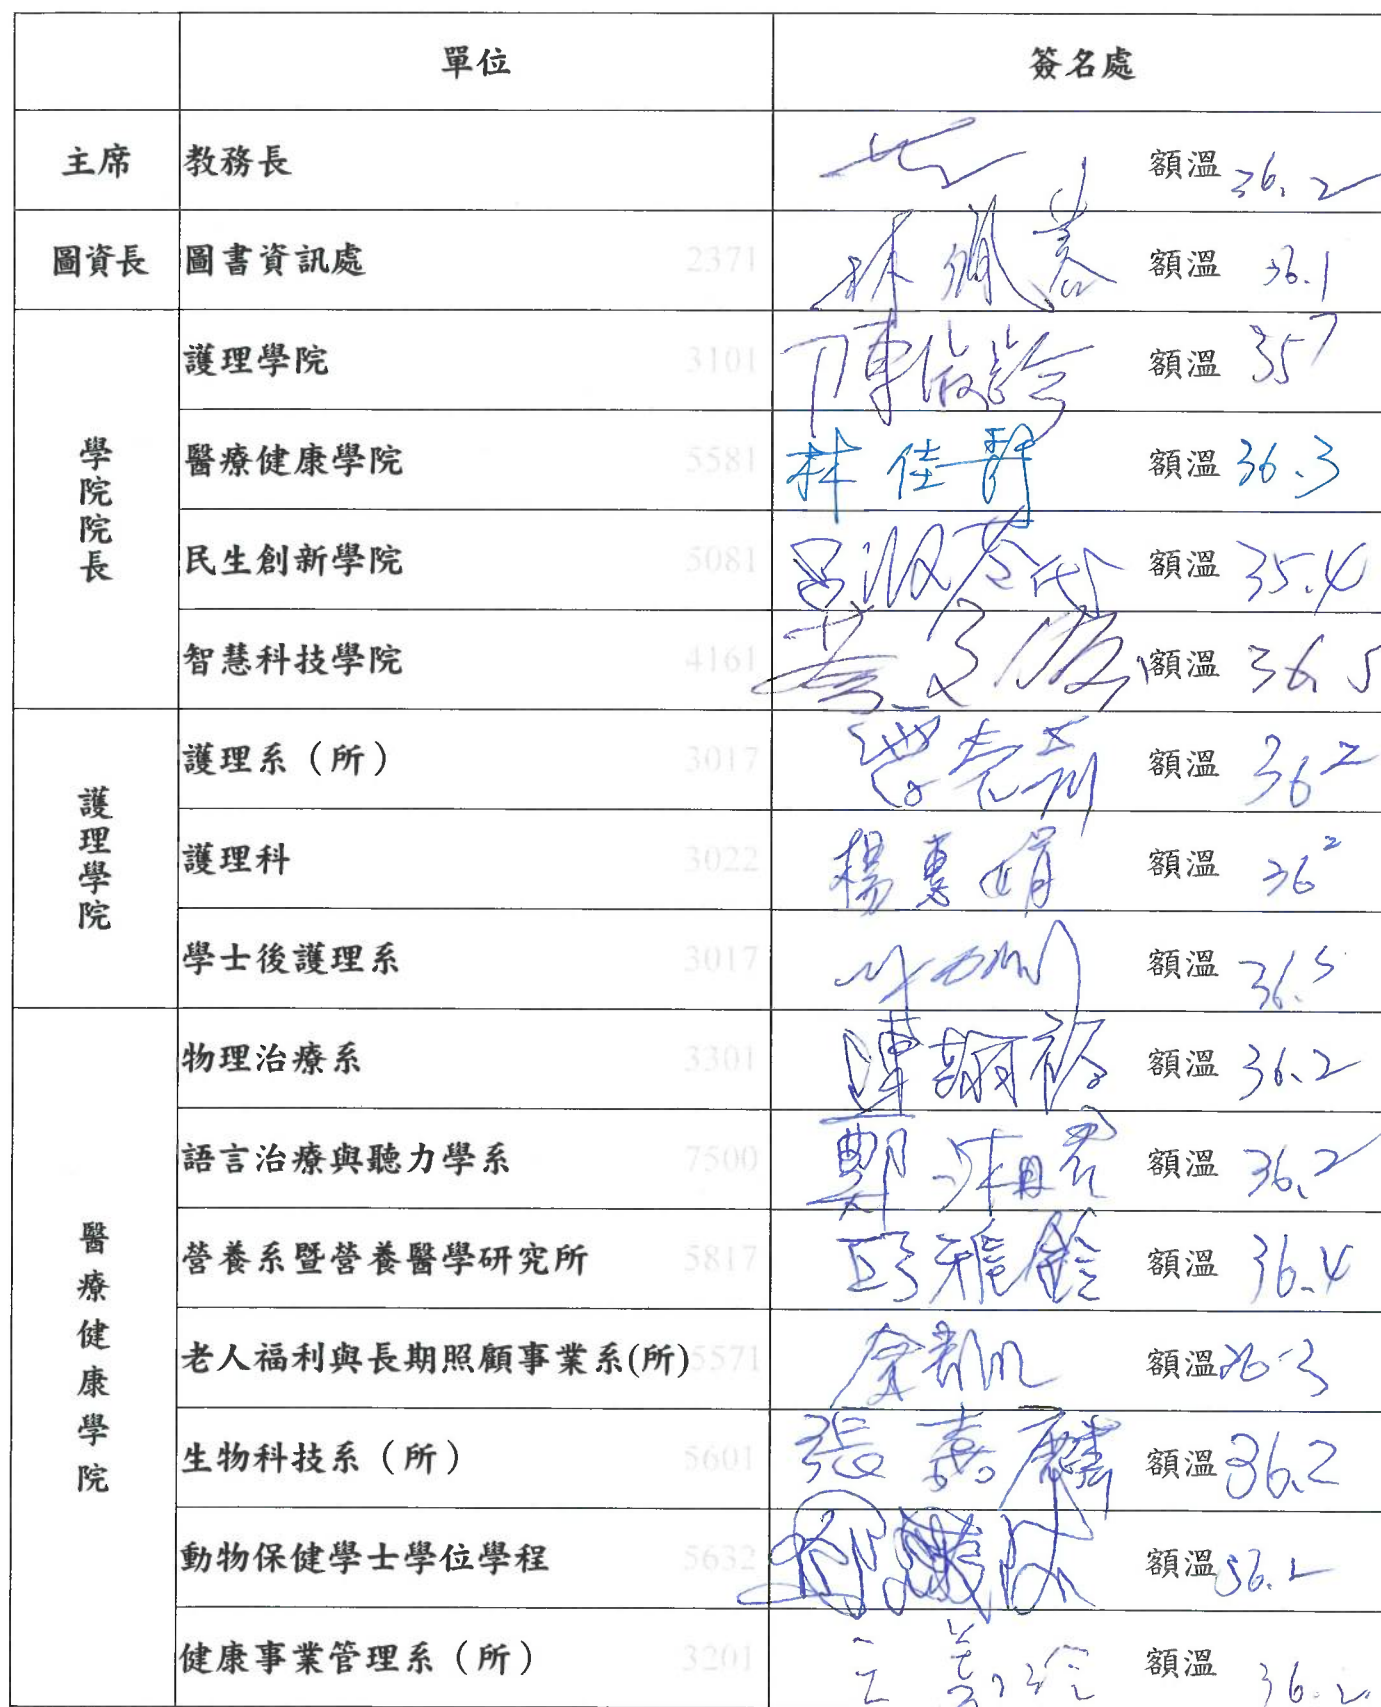 單位 簽名處
主席 教務長 額溫 36.2
圖資長 圖書資訊處 2371 林佩蓁 額溫 36.1
學院院長
護理學院 3101 陳淑齡 額溫 35 7
醫療健康學院 5581 林佳靜 額溫 36.3
民生創新學院 5081 呂淑芬代 額溫 35.4
智慧科技學院 4161 額溫 36.5
護理學院
護理系（所） 3017 額溫 36 2
護理科 3022 楊惠娟 額溫 36 2
學士後護理系 3017 額溫 36.5
醫療健康學院
物理治療系 3301 陳翰裕 額溫 36.2
語言治療與聽力學系 7500 鄭 君 額溫 36.2
營養系暨營養醫學研究所 5817 邱雅鈴 額溫 36.4
老人福利與長期照顧事業系(所) 5571 額溫 36.3
生物科技系（所） 5601 張嘉麟 額溫 36.2
動物保健學士學位學程 5632 額溫 36.2
健康事業管理系（所） 3201 額溫 36.2